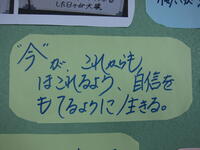 した日々が大変
"今"が、これからも
ほこれるよう、自信を
もてるように生きる。